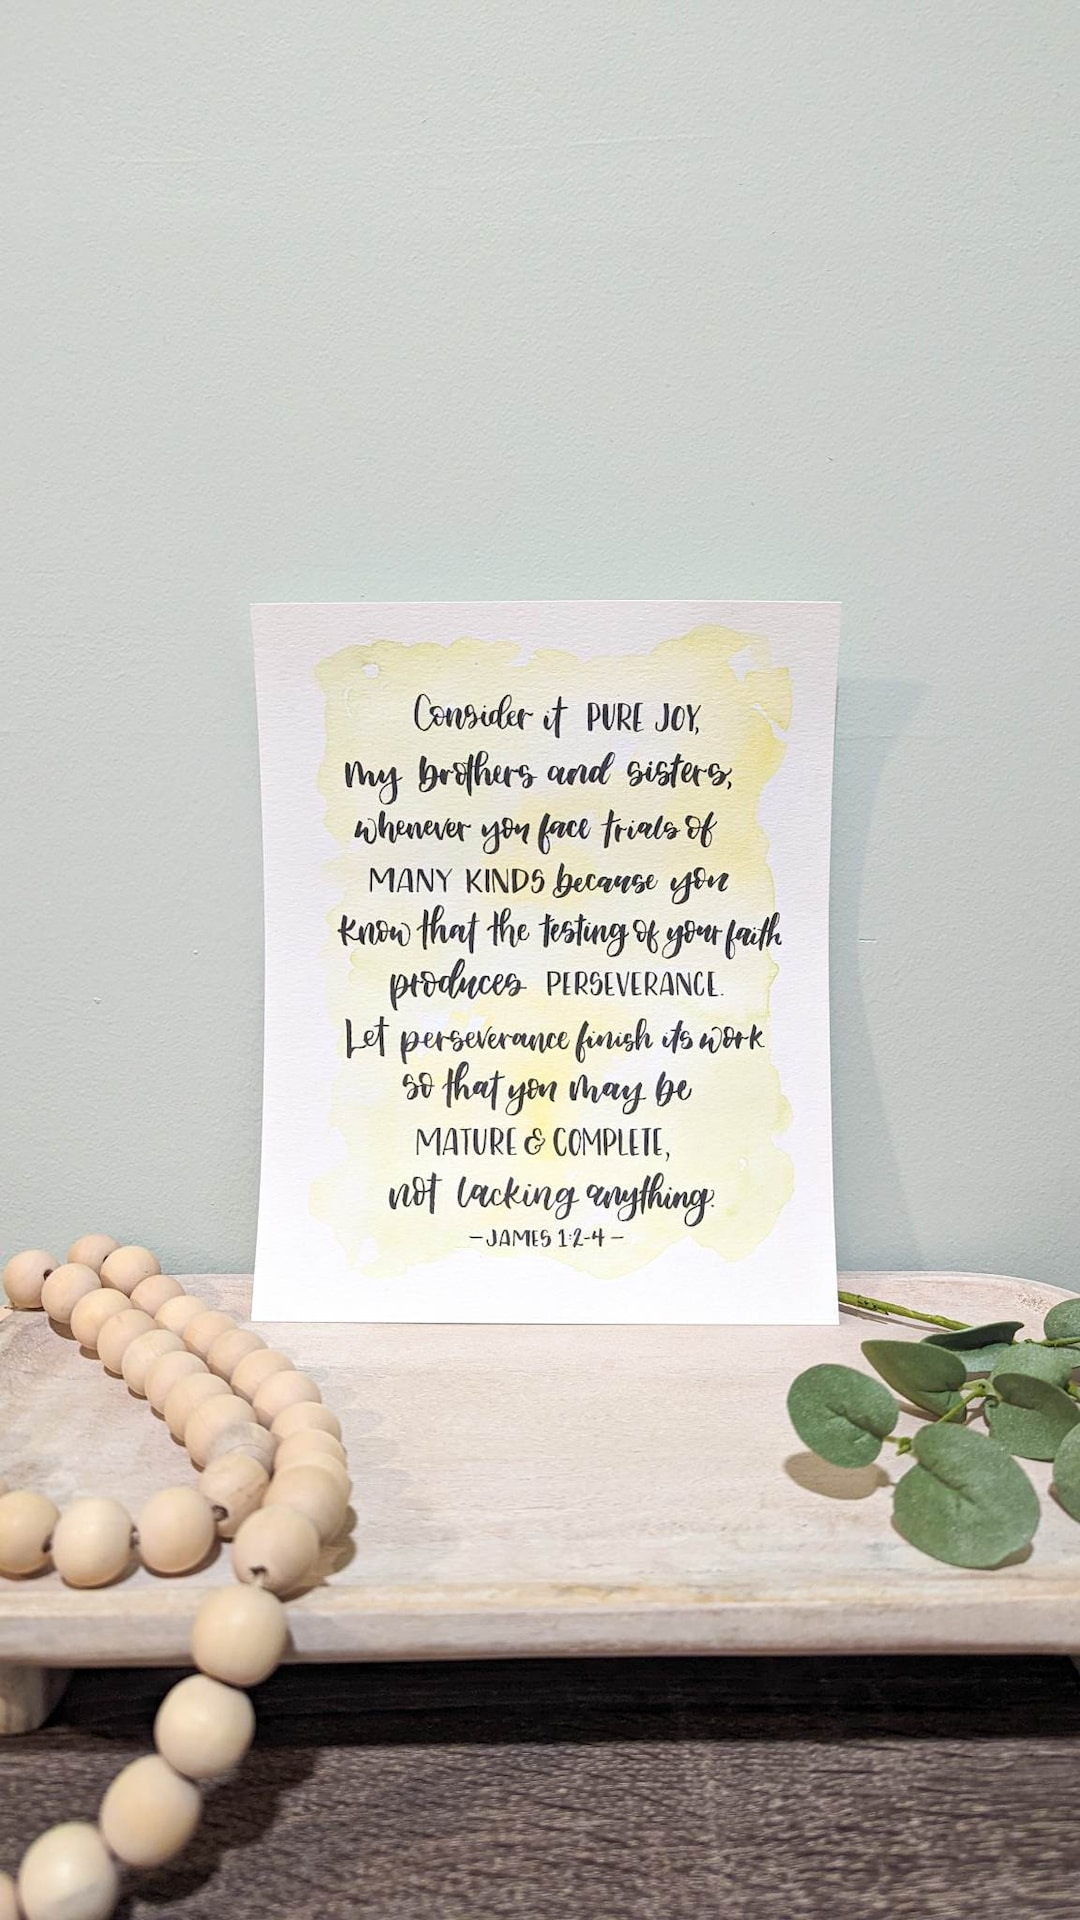 Consider it PURE JOY,
my brothers and sisters,
whenever you face trials of
MANY KINDS because you
know that the testing of your faith
produces PERSEVERANCE.
Let perseverance finish its work
so that you may be
MATURE & COMPLETE,
not lacking anything.
-JAMES 1:2-4-